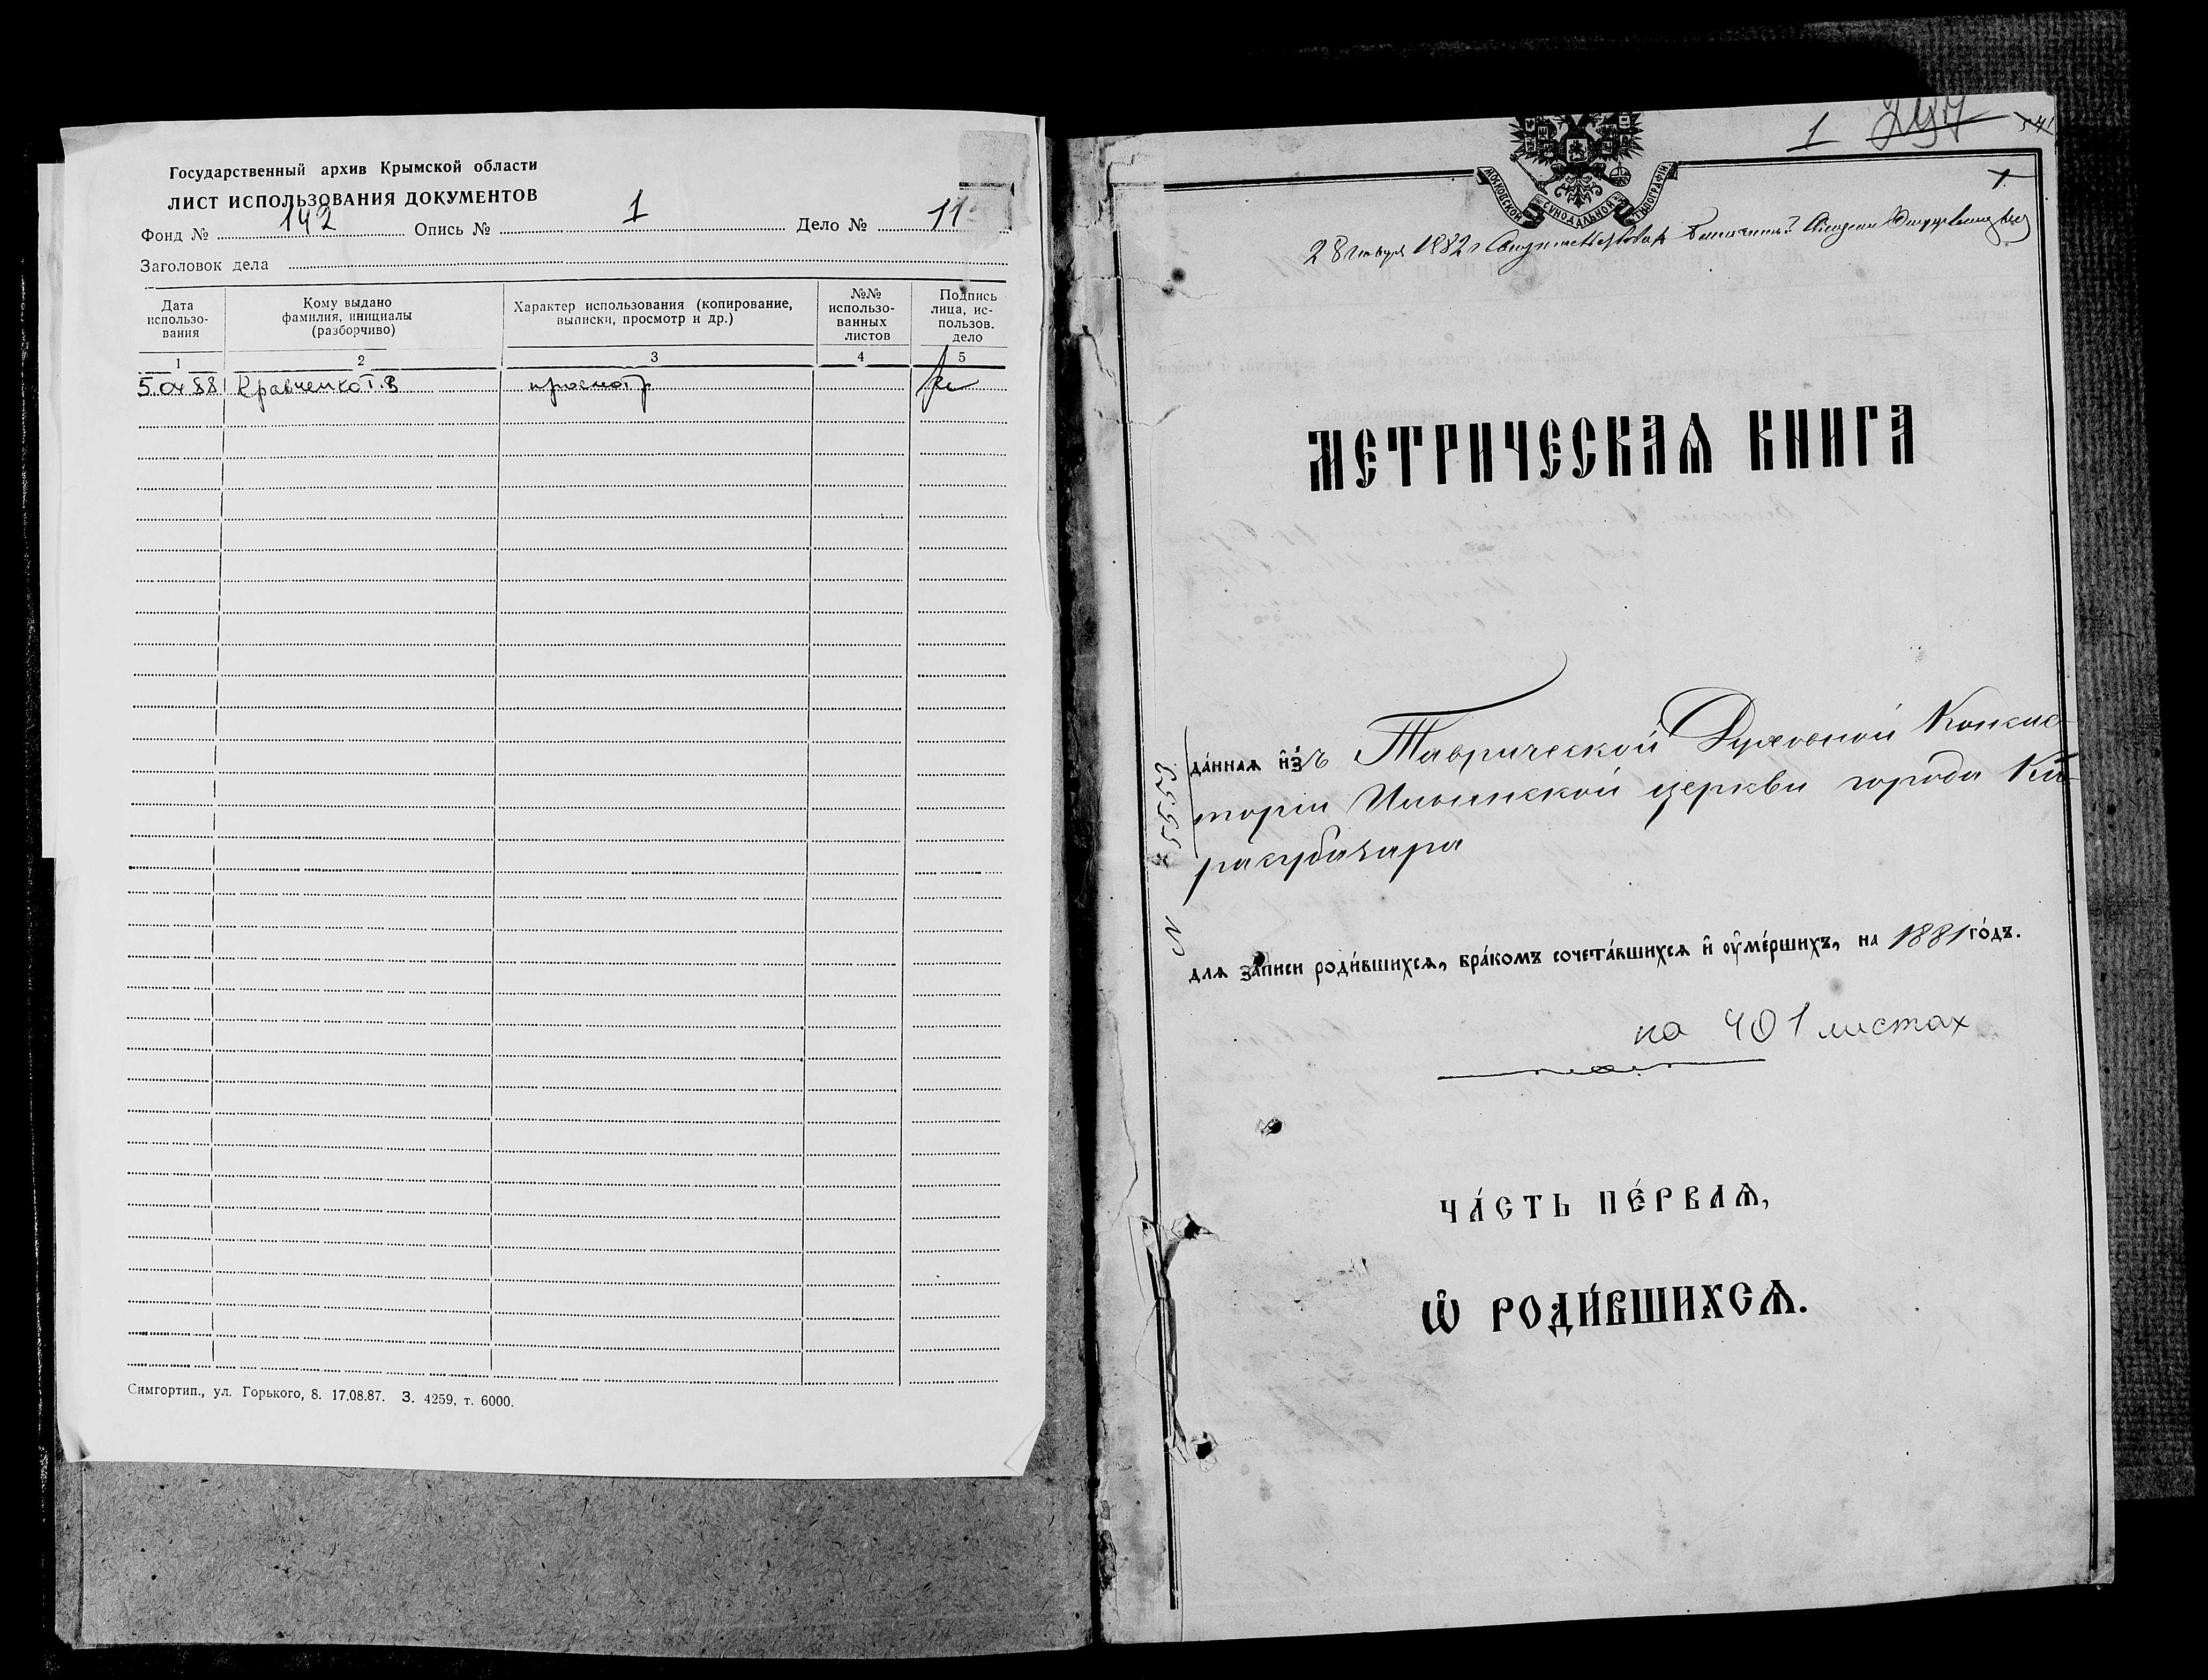 Государственный архив Крымской области
ЛИСТ ИСПОЛЬЗОВАНИЯ ДОКУМЕНТОВ
Фонд № 142 Опись № 1 Дело № 11
Заголовок дела
Дата использо-вания
Кому выдано фамилия, инициалы (разборчиво)
Характер использования (копирование, выписки, просмотр и др.)
№№ использо-ванных листов
Подпись лица, ис-пользов. дело
1 2 3 4 5
5.04.88 Кравченко Т.В просмотр
Симгортип., ул. Горького, 8. 17.08.87. З. 4259, т. 6000.
1
МОСКОВСКОЙ СУНОДАЛЬНОЙ ТИПОГРАФІИ
28 Января 1882 г
МЕТРИЧЕСКАѦ КНИГА
да́ннаѧ и҆́зъ Таврической Духовной Консис-
торіи Ильинской церкви города Ка-
расубазара
№ 5553
длѧ за́писи роди́вшихсѧ, бра́комъ сочета́вшихсѧ и҆ оу҆ме́ршихъ, на 1881 го́дъ.
на 401 листах
ЧА́СТЬ ПЕ́РВАѦ,
Ѡ҆ РОДИ́ВШИХСѦ.